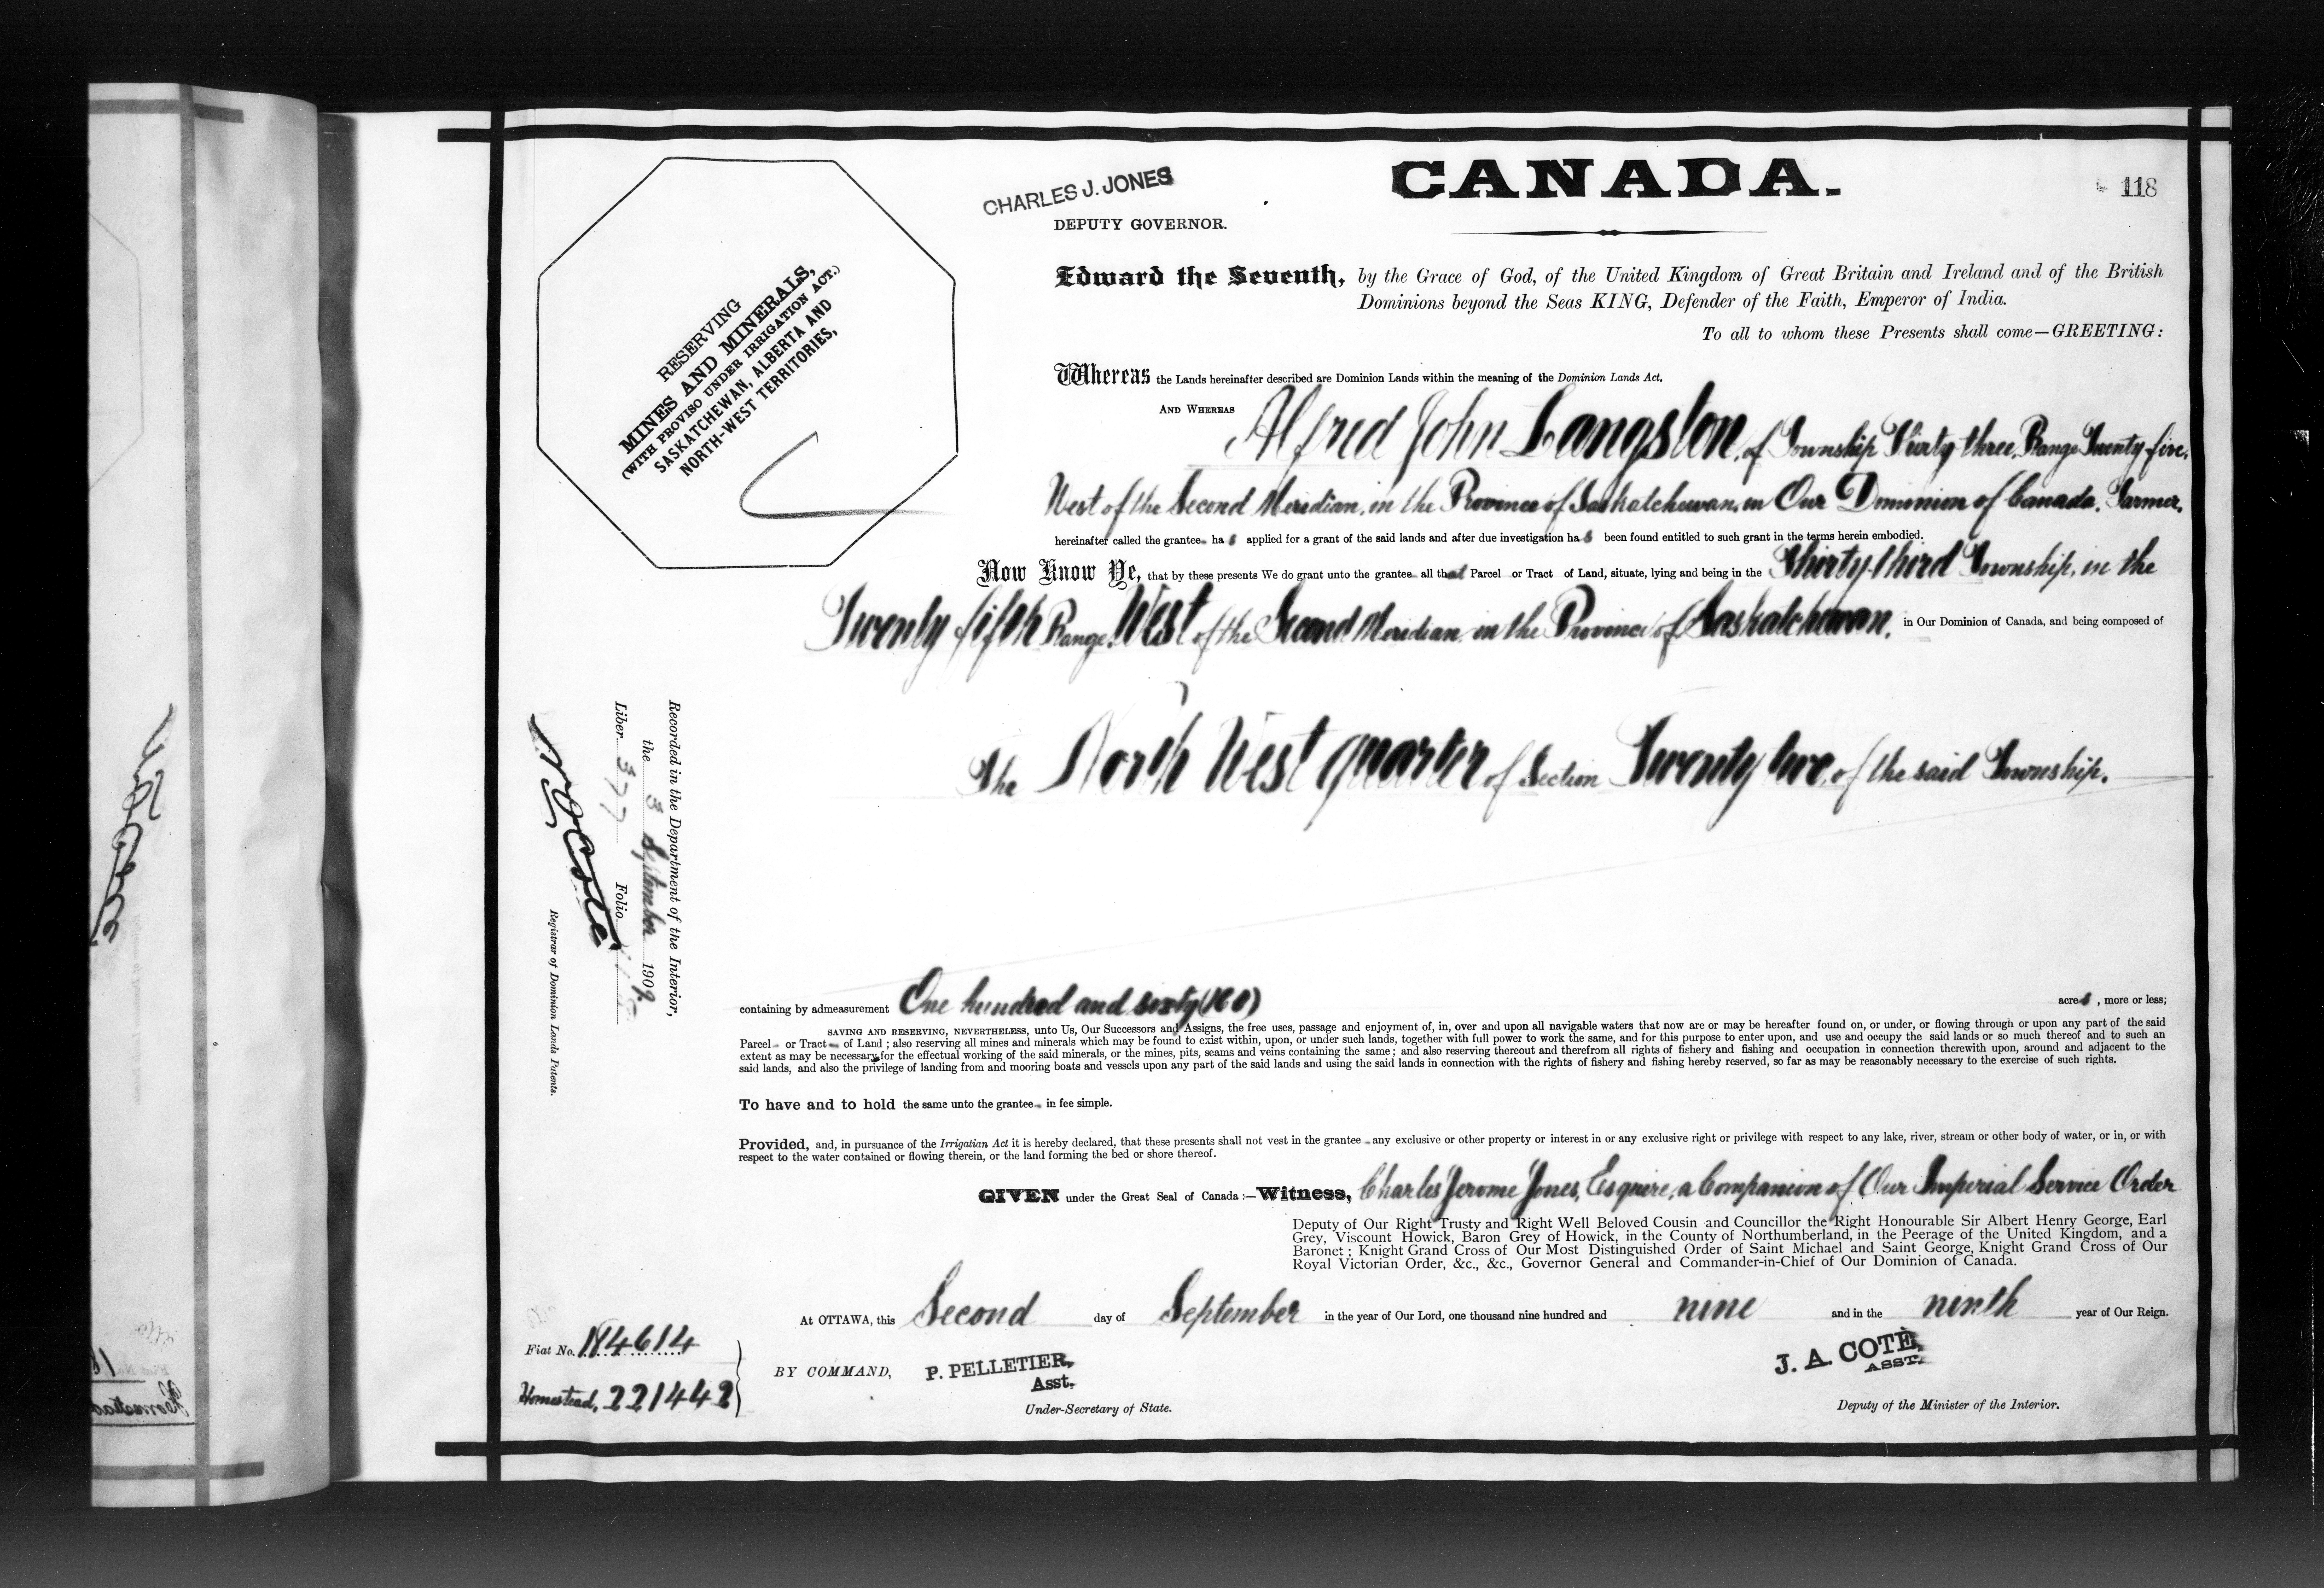 CANADA.
118
CHARLES J. JONES
DEPUTY GOVERNOR.
RESERVING
MINES AND MINERALS,
(WITH PROVISO UNDER IRRIGATION ACT.)
SASKATCHEWAN, ALBERTA AND
NORTH-WEST TERRITORIES,
Edward the Seventh, by the Grace of God, of the United Kingdom of Great Britain and Ireland and of the British
Dominions beyond the Seas KING, Defender of the Faith, Emperor of India.
To all to whom these Presents shall come—GREETING:
Whereas the Lands hereinafter described are Dominion Lands within the meaning of the Dominion Lands Act.
AND WHEREAS Alfred John Langston, of Township Thirty three, Range Twenty five,
West of the Second Meridian, in the Province of Saskatchewan, in Our Dominion of Canada, Farmer,
hereinafter called the grantee has applied for a grant of the said lands and after due investigation has been found entitled to such grant in the terms herein embodied.
Now Know Ye, that by these presents We do grant unto the grantee all that Parcel or Tract of Land, situate, lying and being in the Thirty-third Township, in the
Twenty fifth Range, West of the Second Meridian in the Province of Saskatchewan, in Our Dominion of Canada, and being composed of
The North West quarter of Section Twenty two, of the said Township.
Recorded in the Department of the Interior,
the 3 September 1909.
Liber 377 Folio
N O Cote
Registrar of Dominion Lands Patents.
containing by admeasurement One hundred and sixty (160) acres, more or less;
SAVING AND RESERVING, NEVERTHELESS, unto Us, Our Successors and Assigns, the free uses, passage and enjoyment of, in, over and upon all navigable waters that now are or may be hereafter found on, or under, or flowing through or upon any part of the said
Parcel or Tract of Land; also reserving all mines and minerals which may be found to exist within, upon, or under such lands, together with full power to work the same, and for this purpose to enter upon, and use and occupy the said lands or so much thereof and to such an
extent as may be necessary for the effectual working of the said minerals, or the mines, pits, seams and veins containing the same; and also reserving thereout and therefrom all rights of fishery and fishing and occupation in connection therewith upon, around and adjacent to the
said lands, and also the privilege of landing from and mooring boats and vessels upon any part of the said lands and using the said lands in connection with the rights of fishery and fishing hereby reserved, so far as may be reasonably necessary to the exercise of such rights.
To have and to hold the same unto the grantee in fee simple.
Provided, and, in pursuance of the Irrigatian Act it is hereby declared, that these presents shall not vest in the grantee any exclusive or other property or interest in or any exclusive right or privilege with respect to any lake, river, stream or other body of water, or in, or with
respect to the water contained or flowing therein, or the land forming the bed or shore thereof.
GIVEN under the Great Seal of Canada:—Witness, Charles Jerome Jones, Esquire, a Companion of Our Imperial Service Order
Deputy of Our Right Trusty and Right Well Beloved Cousin and Councillor the Right Honourable Sir Albert Henry George, Earl
Grey, Viscount Howick, Baron Grey of Howick, in the County of Northumberland, in the Peerage of the United Kingdom, and a
Baronet; Knight Grand Cross of Our Most Distinguished Order of Saint Michael and Saint George, Knight Grand Cross of Our
Royal Victorian Order, &c., &c., Governor General and Commander-in-Chief of Our Dominion of Canada.
At OTTAWA, this Second day of September in the year of Our Lord, one thousand nine hundred and nine and in the ninth year of Our Reign.
Fiat No. 184614
Homestead, 221442
BY COMMAND, P. PELLETIER,
Asst.
Under-Secretary of State.
J. A. COTÉ,
ASST.
Deputy of the Minister of the Interior.